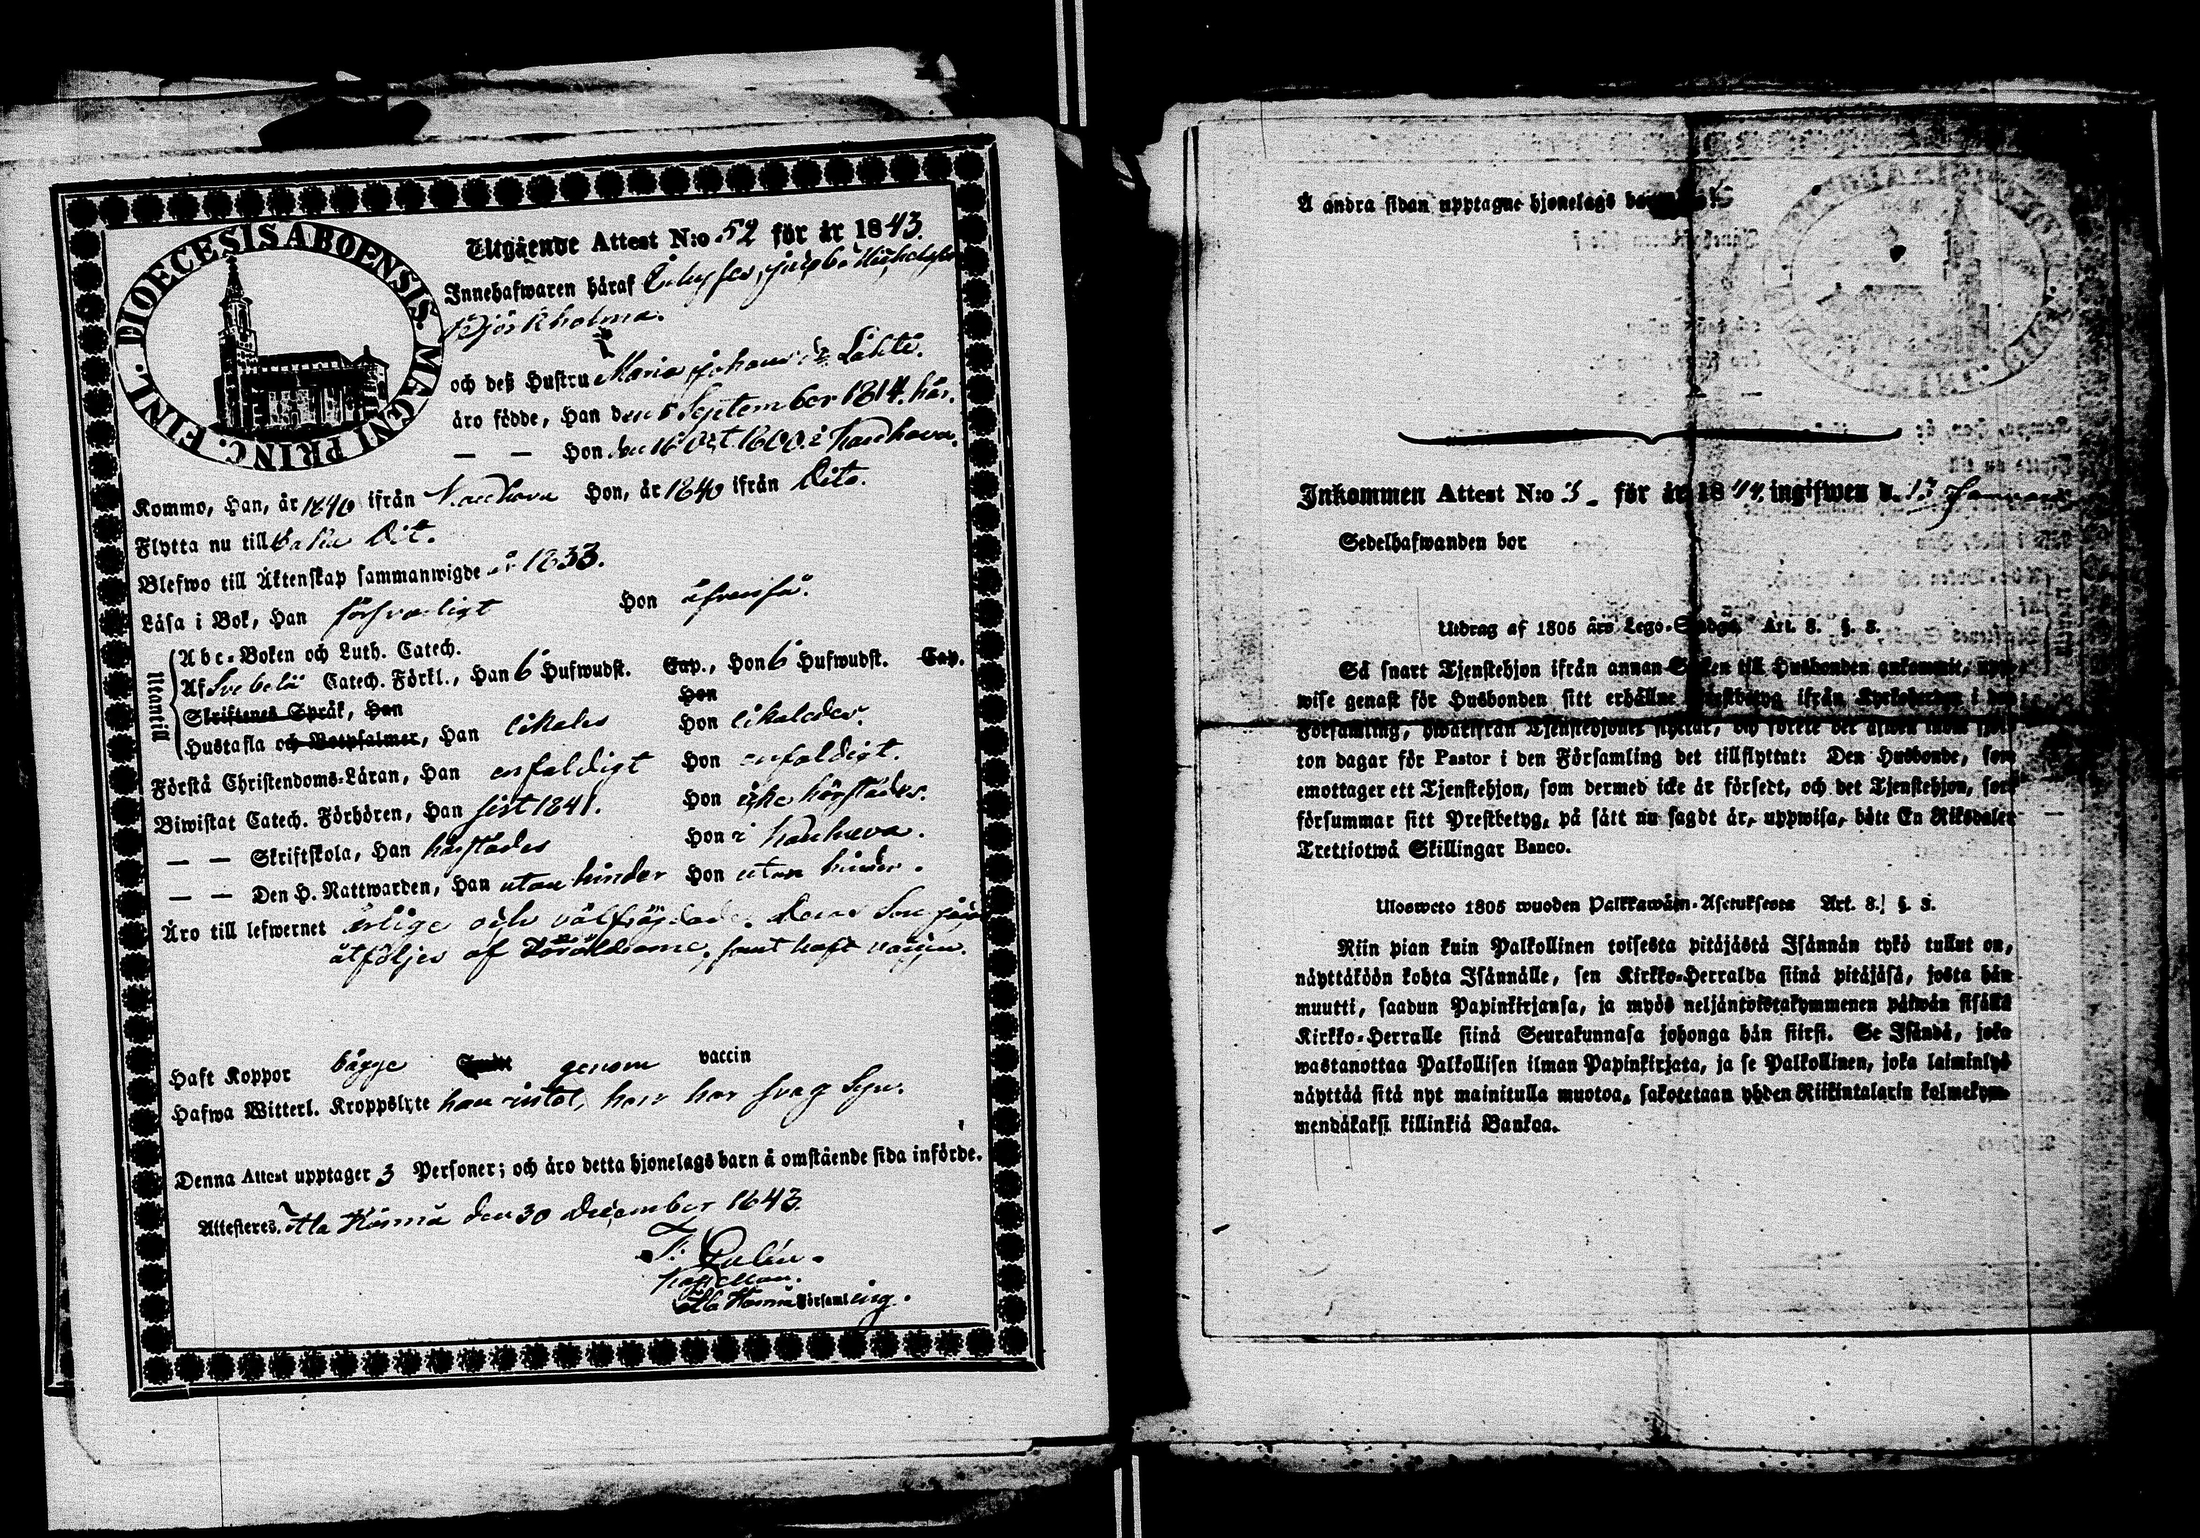 DIOECESIS ABOENSIS. MAGNI PRINC. FINL.
Utgående Attest N:o 52 för år 1843.
Innehafwaren häraf
Björkholma.
och deß Hustru Maria Johans dr Lähte.
äro födde, Han den 5 September 1814. här.
— — Hon den 16 Oct. 1800. i Kauhava.
Kommo, Han, år 1840 ifrån Kauhava Hon, år 1840 ifrån Dito.
Flytta nu till baka Dit.
Blefwo till Äktenskap sammanwigde år 1833.
Läsa i Bok, Han försvarligt Hon äfvenså.
Utantill
Abc-Boken och Luth. Catech.
Af Svebelii Catech. Förkl., Han 6 Hufwudst. Cap., Hon 6 Hufwudst. Cap.
Skriftenes Språk, Han Hon
Hustafla och Botpsalmer, Han likaledes Hon likaledes.
Förstå Christendoms-Läran, Han enfaldigt Hon enfaldigt.
Biwistat Catech. Förhören, Han sist 1841. Hon icke härstädes.
— — Skriftskola, Han härstädes Hon i Kauhava.
— — Den H. Nattwarden, Han utan hinder Hon utan hinder.
Äro till lefwernet ärlige och välfrägdade. Deras Son
åtföljes af Föräldrarne, samt haft vaccin.
Haft Koppor bägge genom vaccin
Hafwa Witterl. Kroppslyte hon intet, han har svag Syn.
Denna Attest upptager 3 Personer; och äro detta hjonelags barn å omstående sida införde.
Attesteres. Ala Härmä den 30 December 1843.
Kapellan.
Ala Härmä Församling.
Å andra sidan upptagne hjonelags barn
Inkommen Attest N:o 3. för år 1844. ingifwen d. 13 Januarii
Sedelhafwanden bor
Utdrag af 1805 års Lego-Stadga Art. 8. §. 8.
Så snart Tjenstehjon ifrån annan Socken till Husbonden ankommit, upp-
wise genast för Husbonden sitt erhållne Prestbetyg ifrån Kyrkoherden i den
Församling, hwarifrån Tjenstehjonet flyttat, och förete det äfwen inom fjor-
ton dagar för Pastor i den Församling det tillflyttat: Den Husbonde, som
emottager ett Tjenstehjon, som dermed icke är försedt, och det Tjenstehjon, som
försummar sitt Prestbetyg, på sätt nu sagdt är, uppwisa, böte En Riksdaler
Trettiotwå Skillingar Banco.
Ulosweto 1805 wuoden Palkkawäen-Asetuksesta Art. 8. §. 8.
Niin pian kuin Palkollinen toisesta pitäjästä Isännän tykö tullut on,
näyttäköön kohta Isännälle, sen Kirkko-Herralda siinä pitäjäsä, josta hän
muutti, saadun Papinkirjansa, ja myös neljäntoistakymmenen päiwän sisällä
Kirkko-Herralle siinä Seurakunnasa johonga hän siirsi. Se Isändä, joka
wastanottaa Palkollisen ilman Papinkirjata, ja se Palkollinen, joka laiminlyö
näyttää sitä nyt mainitulla muotoa, sakotetaan yhden Riikintalarin kolmekym-
mendäkaksi killinkiä Bankoa.